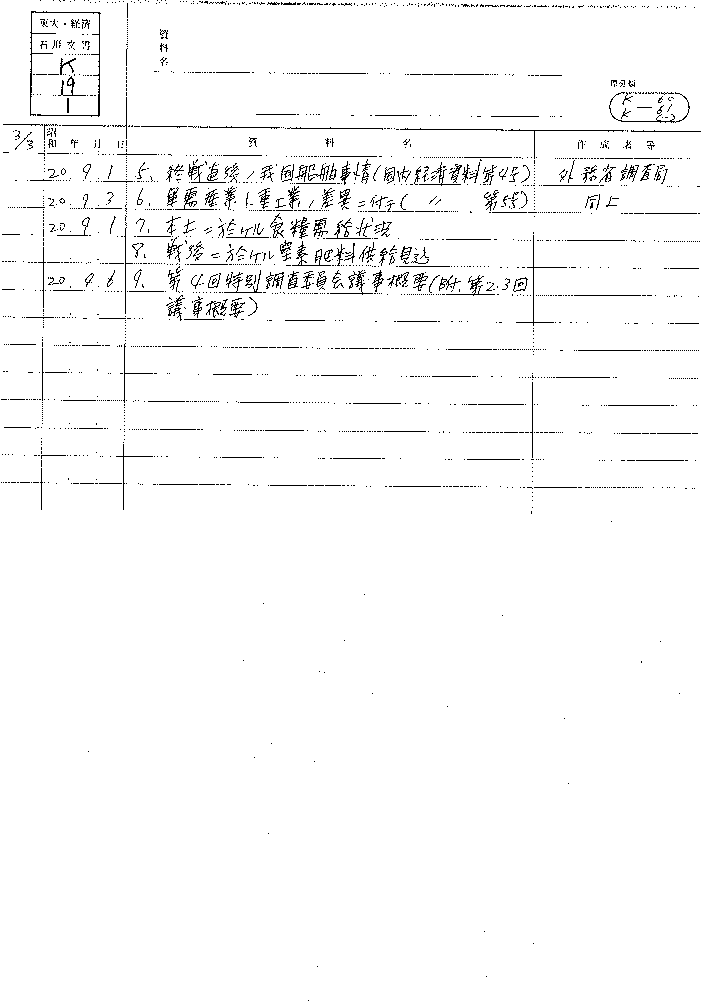 東大・経済
石川文書
K
19
1
資料名
原分類
K
K
3/3 昭和 年 月 日 資料名 作成者等
20. 9. 1 5. 終戦直後ノ我国船舶事情(国内経済資料第4号) 外務省調査局
20. 9. 3 6. 軍需産業ト重工業ノ差異ニ付テ( 〃 第5号) 同上
20. 9. 1 7. 本土ニ於ケル食糧需給状況
8. 戦後ニ於ケル窒素肥料供給見込
20. 9. 6 9. 第4回特別調査委員会議事概要(附. 第2.3回
議事概要)